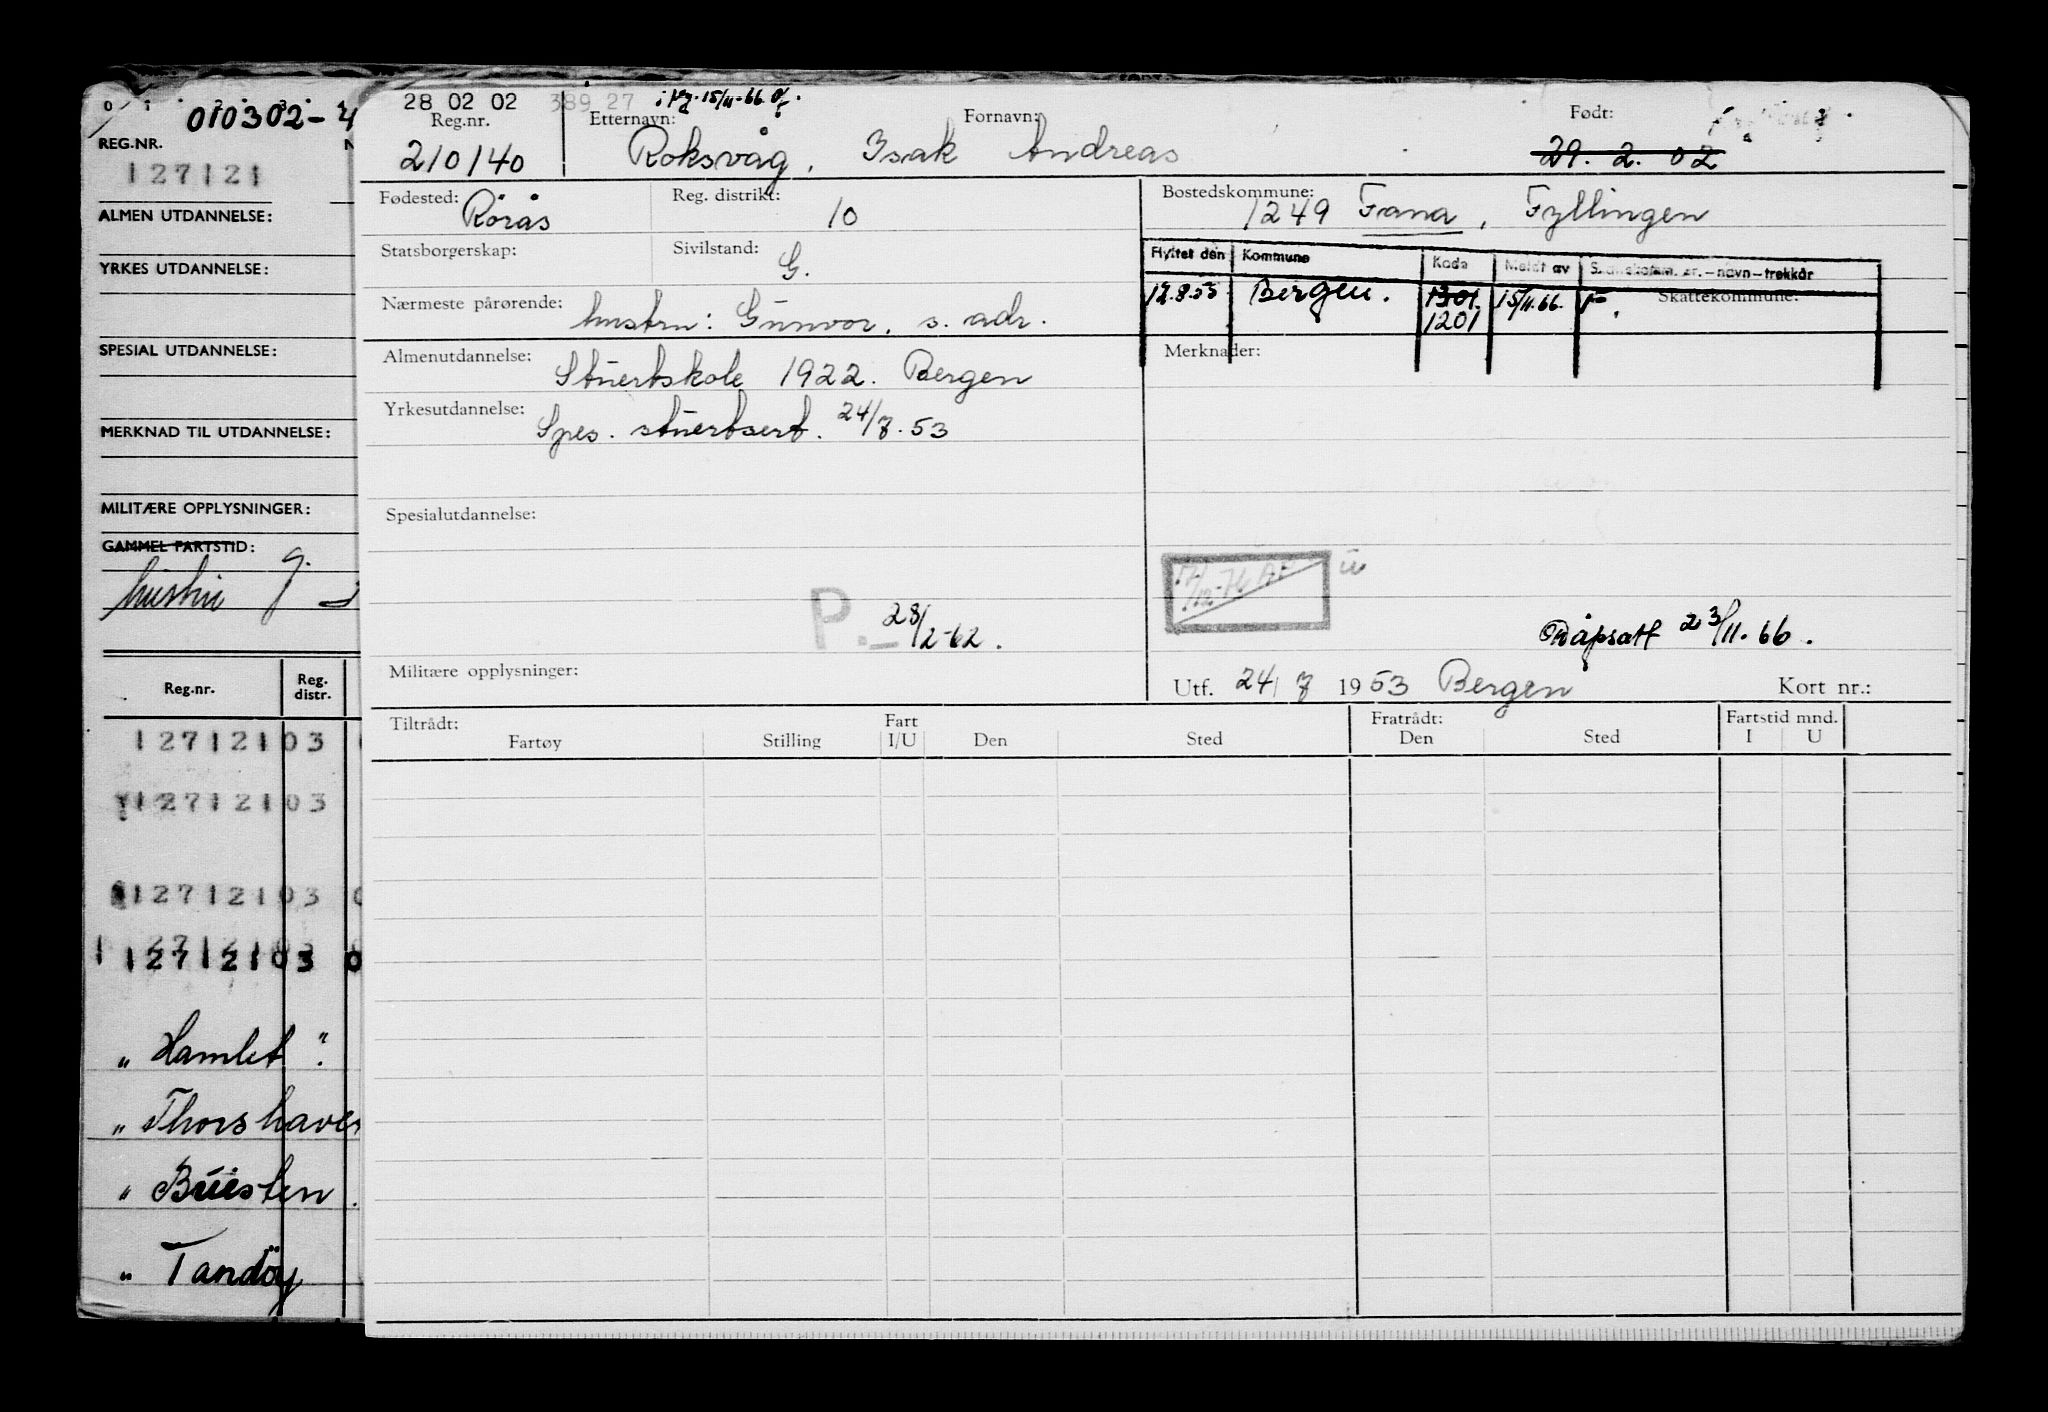 010302-4
REG.NR.
127121
ALMEN UTDANNELSE:
YRKES UTDANNELSE:
SPESIAL UTDANNELSE:
MERKNAD TIL UTDANNELSE:
MILITÆRE OPPLYSNINGER:
GAMMEL FARTSTID:
g.
hustru
Reg.nr. Reg. distr.
127121 03
127121 03
127121 03
127121 03 0
" Hamlet ".
" Thorshaven
" Büesten
" Tandöy
28 02 02 389 27 15/11-66
Reg.nr. Etternavn: Fornavn: Født:
210140 Roksvåg, Isak Andreas 29. 2. 02
Fødested: Rörås Reg. distrikt: 10 Bostedskommune: 1249 Fana, Fyllingen
Statsborgerskap: Sivilstand: G.
Flyttet den Kommune Kode Meldt av Skattekom. nr. - navn - trekkår
Nærmeste pårørende: hustru: Gunvor, s. adr.
12.8.55 Bergen. 1301 15/11.66. F. Skattekommune:
1201
Almenutdannelse: Stüertskole 1922. Bergen
Merknader:
Yrkesutdannelse: Spes. stüertsert. 24/7.53
Spesialutdannelse:
P. 28/2-62.
Påpsatt 23/11.66.
Militære opplysninger:
Utf. 24/7 1953 Bergen Kort nr.:
Tiltrådt: Fart Fratrådt: Fartstid mnd.
Fartøy Stilling I/U Den Sted Den Sted I U